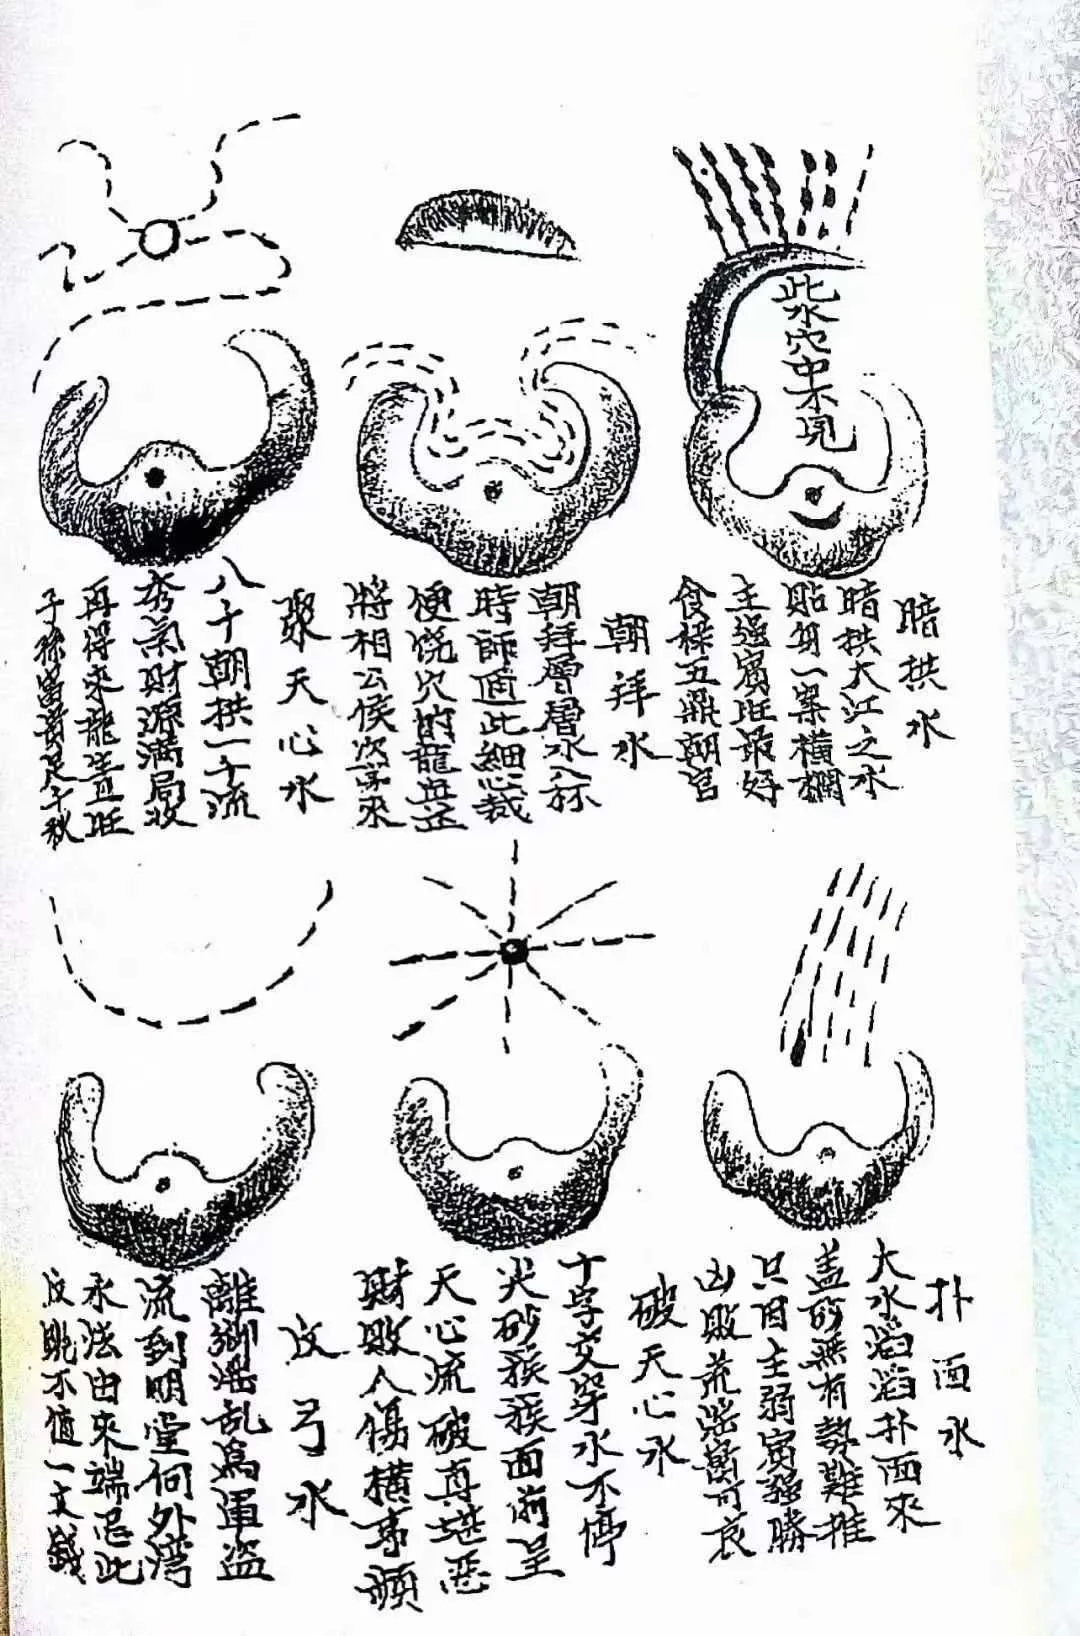 此水穴中不見
暗拱水
暗拱大江之水
貼身一案橫欄
主強賓旺最好
食祿五鼎朝官
朝拜水
朝拜層層水入怀
時師遁此細心裁
便悦穴的龍真正
將相公侯次第來
聚天心水
八十朝拱一千流
秀氣財源滿局收
再得來龍生且旺
子孫富貴足千秋
扑面水
大水滔滔扑面來
盖砂無有勢難推
只因主弱賓強勝
凶敗荒淫萬可哀
破天心水
十字交穿水不停
尖砂簇簇面前呈
天心流破真堪惡
財敗人傷橫事頻
反弓水
離鄉淫乱為軍盜
流到明堂向外湾
水法由來端忌此
反跳不值一文錢